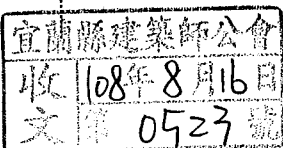 宜蘭縣建築師公會
收文
108年8月16日
第0523號